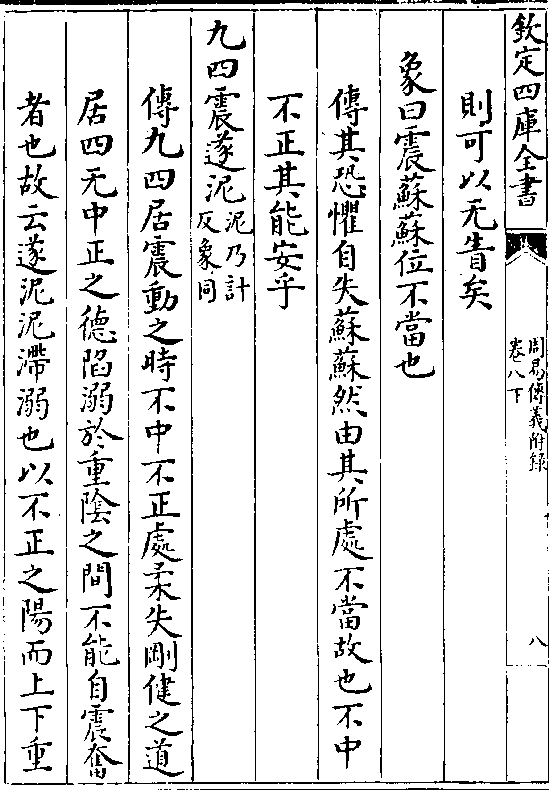 欽定四庫全書
周易傳義附録
卷八下
八
則可以无眚矣
象曰震蘇蘇位不當也
傳其恐懼自失蘇蘇然由其所處不當故也不中
不正其能安乎
九四震遂泥泥乃計反象同
傳九四居震動之時不中不正處柔失剛健之道
居四无中正之德陷溺於重陰之間不能自震奮
者也故云遂泥泥滯溺也以不正之陽而上下重